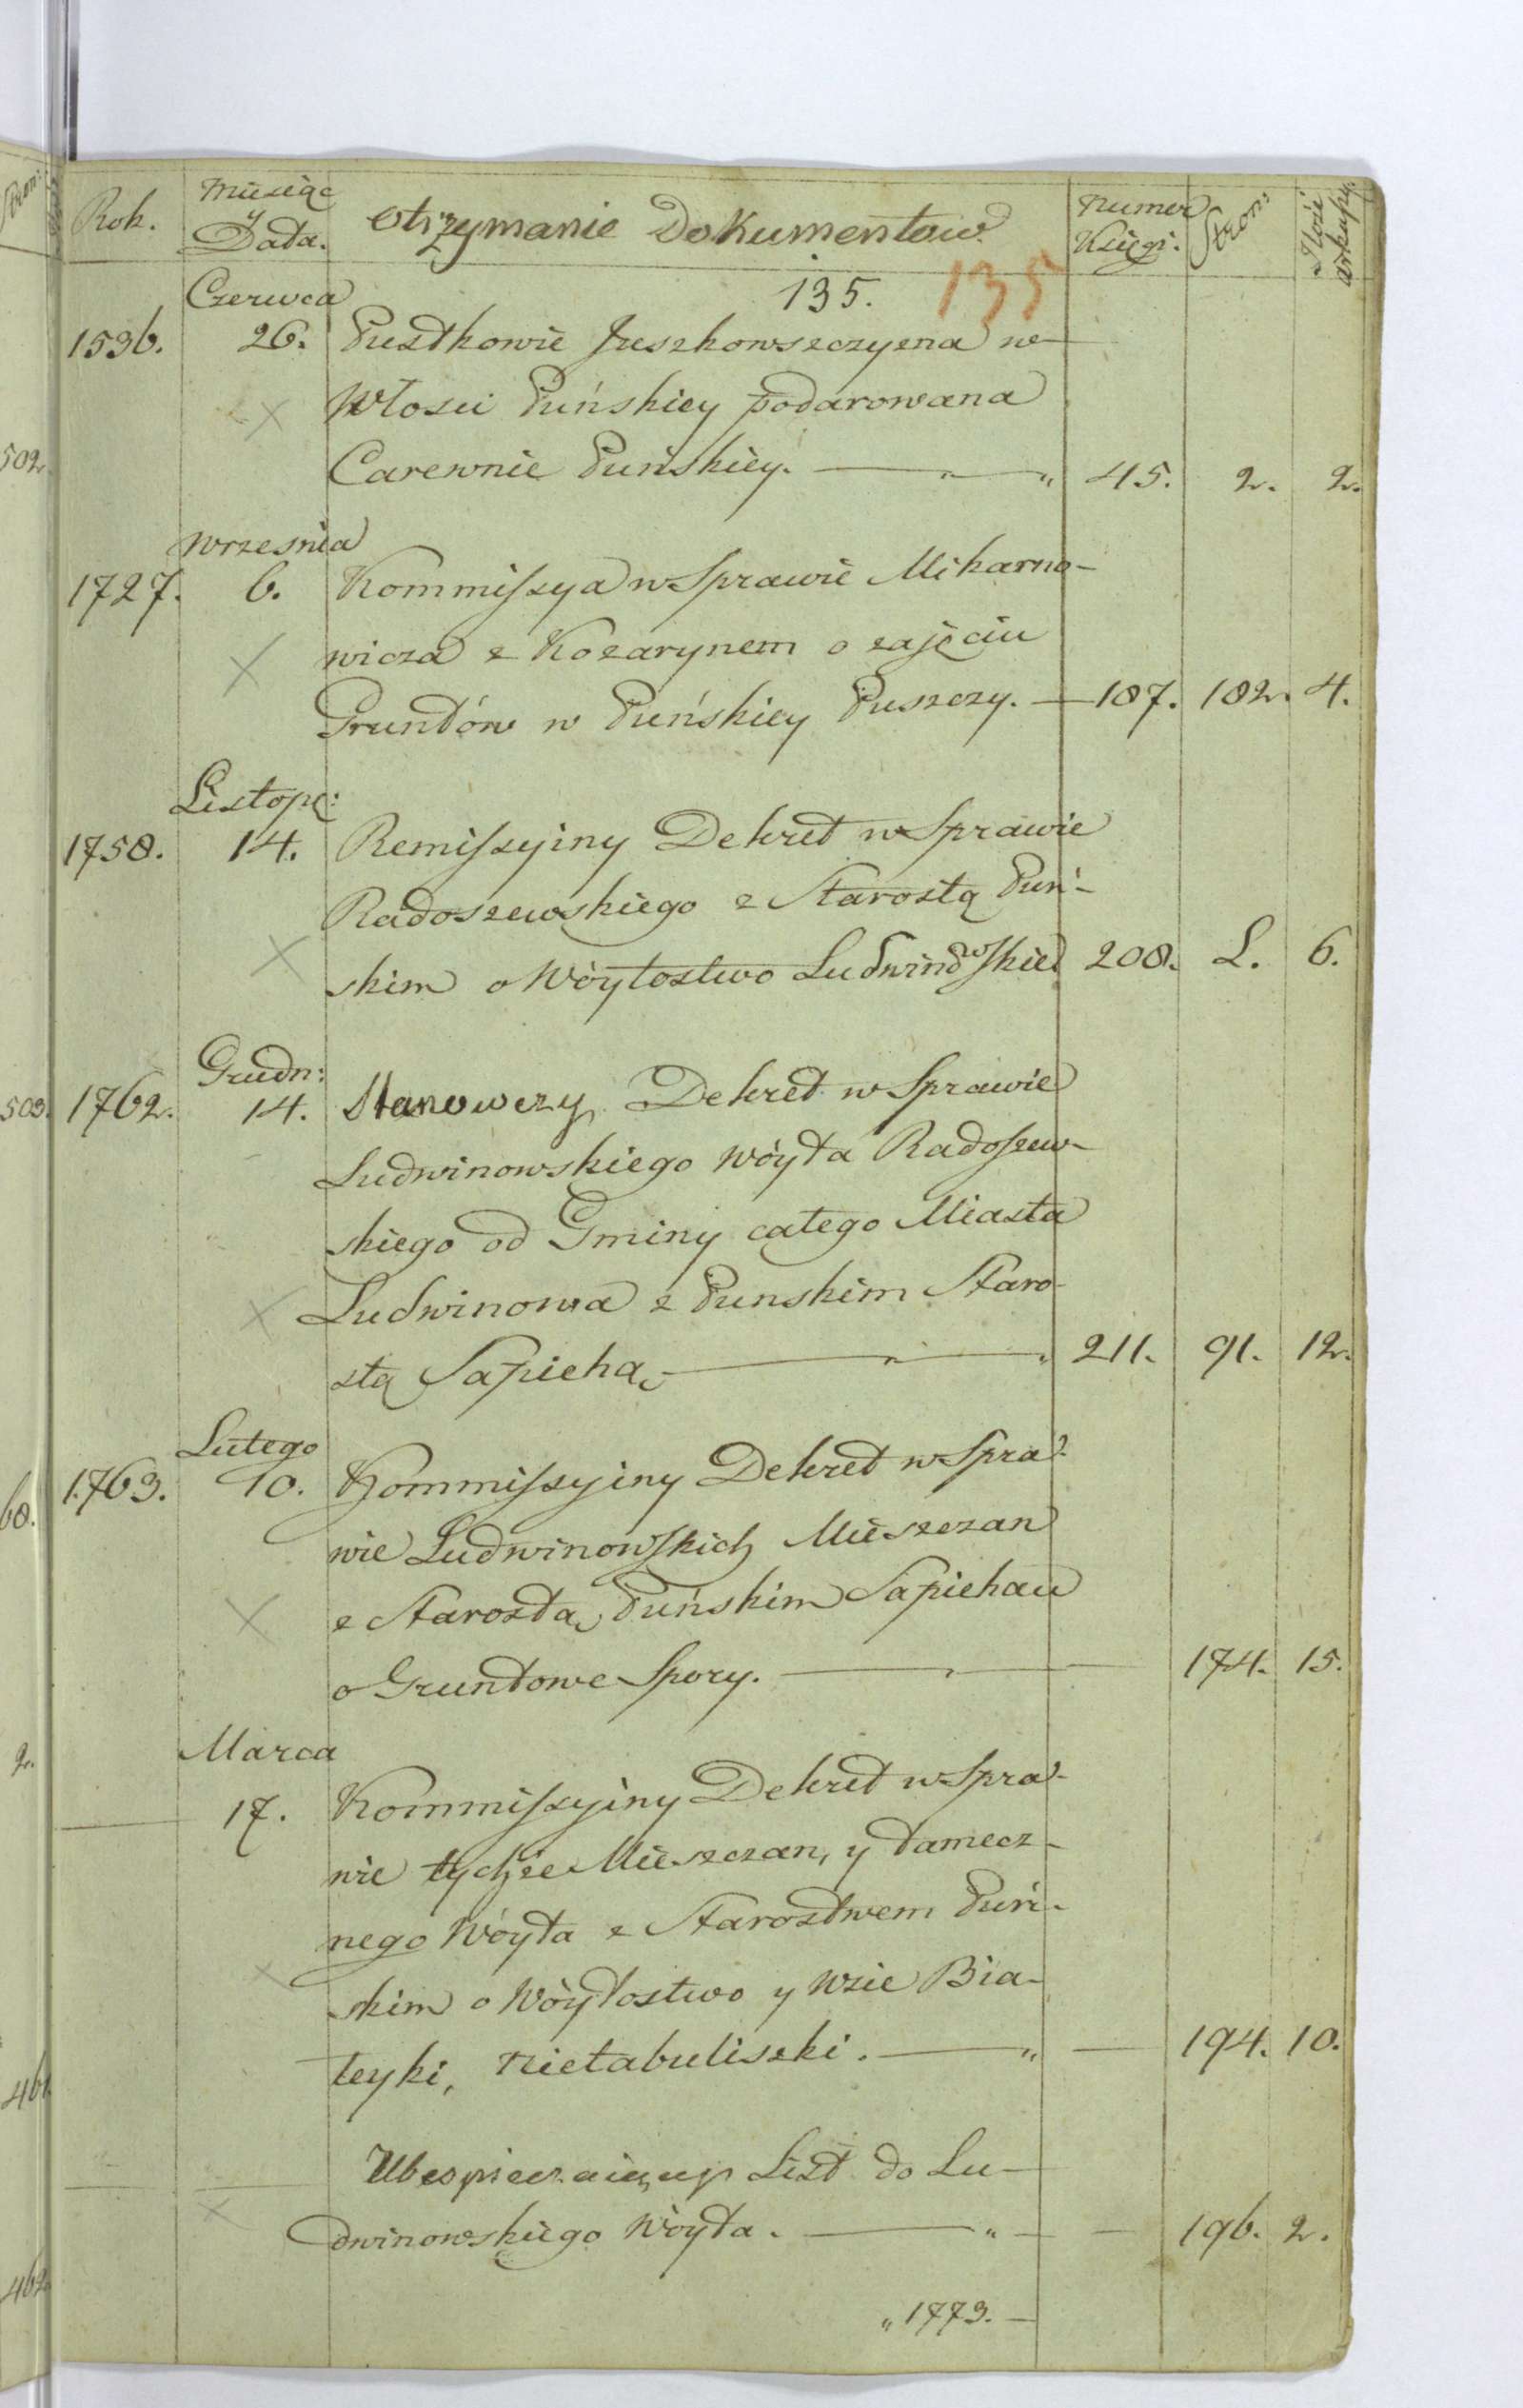 Rok. Miesiąc y Data. Otrzymanie Dokumentow. Numer Księgi. Stron: Ilość arkuszy.
135. 135
Czerwca
1536. 26. Pustkowie Juszkowszczyzna we
Włosci Puńskiey podarowana
Carewnie Puńskiey. 45. 2. 2.
Wrzesnia
1727. 6. Kommissya w Sprawie Mikarno-
wicza z Kozarynem o zajęciu
Gruntów w Puńskiey Puszczy. 187. 182. 4.
Listop:
1758. 14. Remissyiny Dekret w Sprawie
Radoszewskiego z Starostą Puń-
skim o Wóytostwo Ludwinowskie 208. L. 6.
Grudn:
1762. 14. Stanowczy Dekret w Sprawie
Ludwinowskiego Wóyta Radoszew-
skiego od Gminy całego Miasta
Ludwinowa z Punskim Staro-
stą Sapiehą 211. 91. 12.
Lutego
1763. 10. Kommissyiny Dekret w Spra-
wie Ludwinowskich Mieszczan
z Starostą Puńskim Sapiehau
o Gruntowe Spory. — 174. 15.
Marca
— 17. Kommissyiny Dekret w Spra-
wie tychże Mieszczan, y tamecz-
nego Wóyta z Starostwem Puń-
skim o Wóytostwo y Wsie Bia-
łeyki, Nietabuliszki. — 194. 10.
— — Ubespieczaiący List do Lu-
dwinowskiego Wóyta. — 196. 2.
„ 1773. —